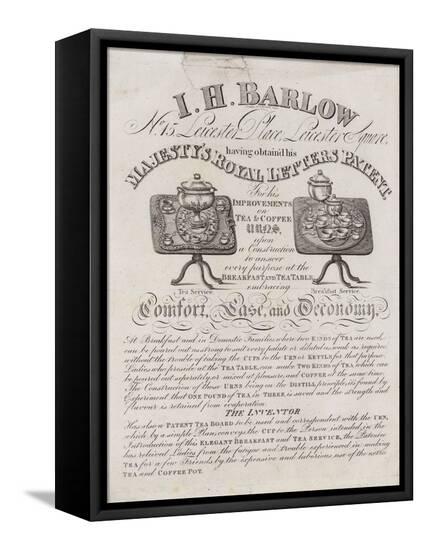 I. H. BARLOW
No. 15 Leicester Place, Leicester Square,
having obtain'd his
MAJESTY'S ROYAL LETTERS PATENT
For his
IMPROVEMENTS
on
TEA & COFFEE
URNS,
upon
a Construction
to answer
every purpose at the
BREAKFAST AND TEA TABLE,
embracing
Tea Service.
Breakfast Service.
Comfort, Ease, and Oeconomy.
At Breakfast and in Domestic Families where two KINDS of TEA are used,
can be poured out as strong to suit every palate or diluted as weak as required
without the trouble of taking the CUPS to the URN or KETTLE for that purpose.
Ladies who preside at the TEA TABLE, can make TWO KINDS of TEA which can
be poured out seperately, or mixed at pleasure, and COFFEE at the same time.
The Construction of these URNS being on the DISTILL principle, it is found by
Experiment that ONE POUND of TEA in THREE, is saved and the strength and
flavour is retained from evaporation.
THE INVENTOR
Has also a PATENT TEA BOARD to be used and correspondent with the URN,
which by a simple Plan, conveys the CUP to the Person intended, in the
Introduction of this ELEGANT BREAKFAST and TEA SERVICE, the Patentee
has relieved Ladies from the fatigue and trouble experienced in making
TEA for a few Friends by the expensive and laborious use of the
TEA and COFFEE POT.